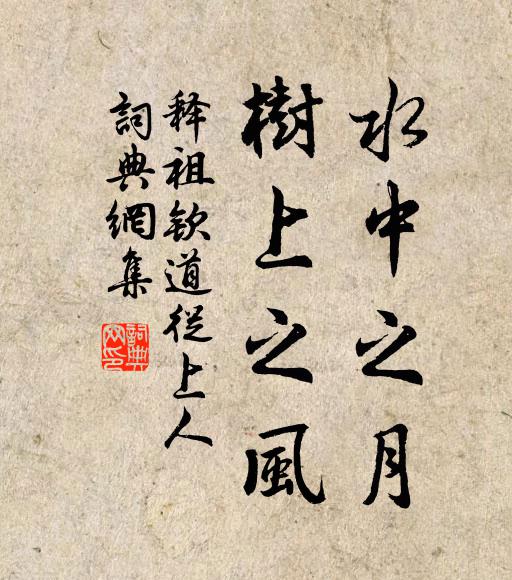 水中之月
樹上之風
释祖欽道從上人
詞典網集
詞典
网印